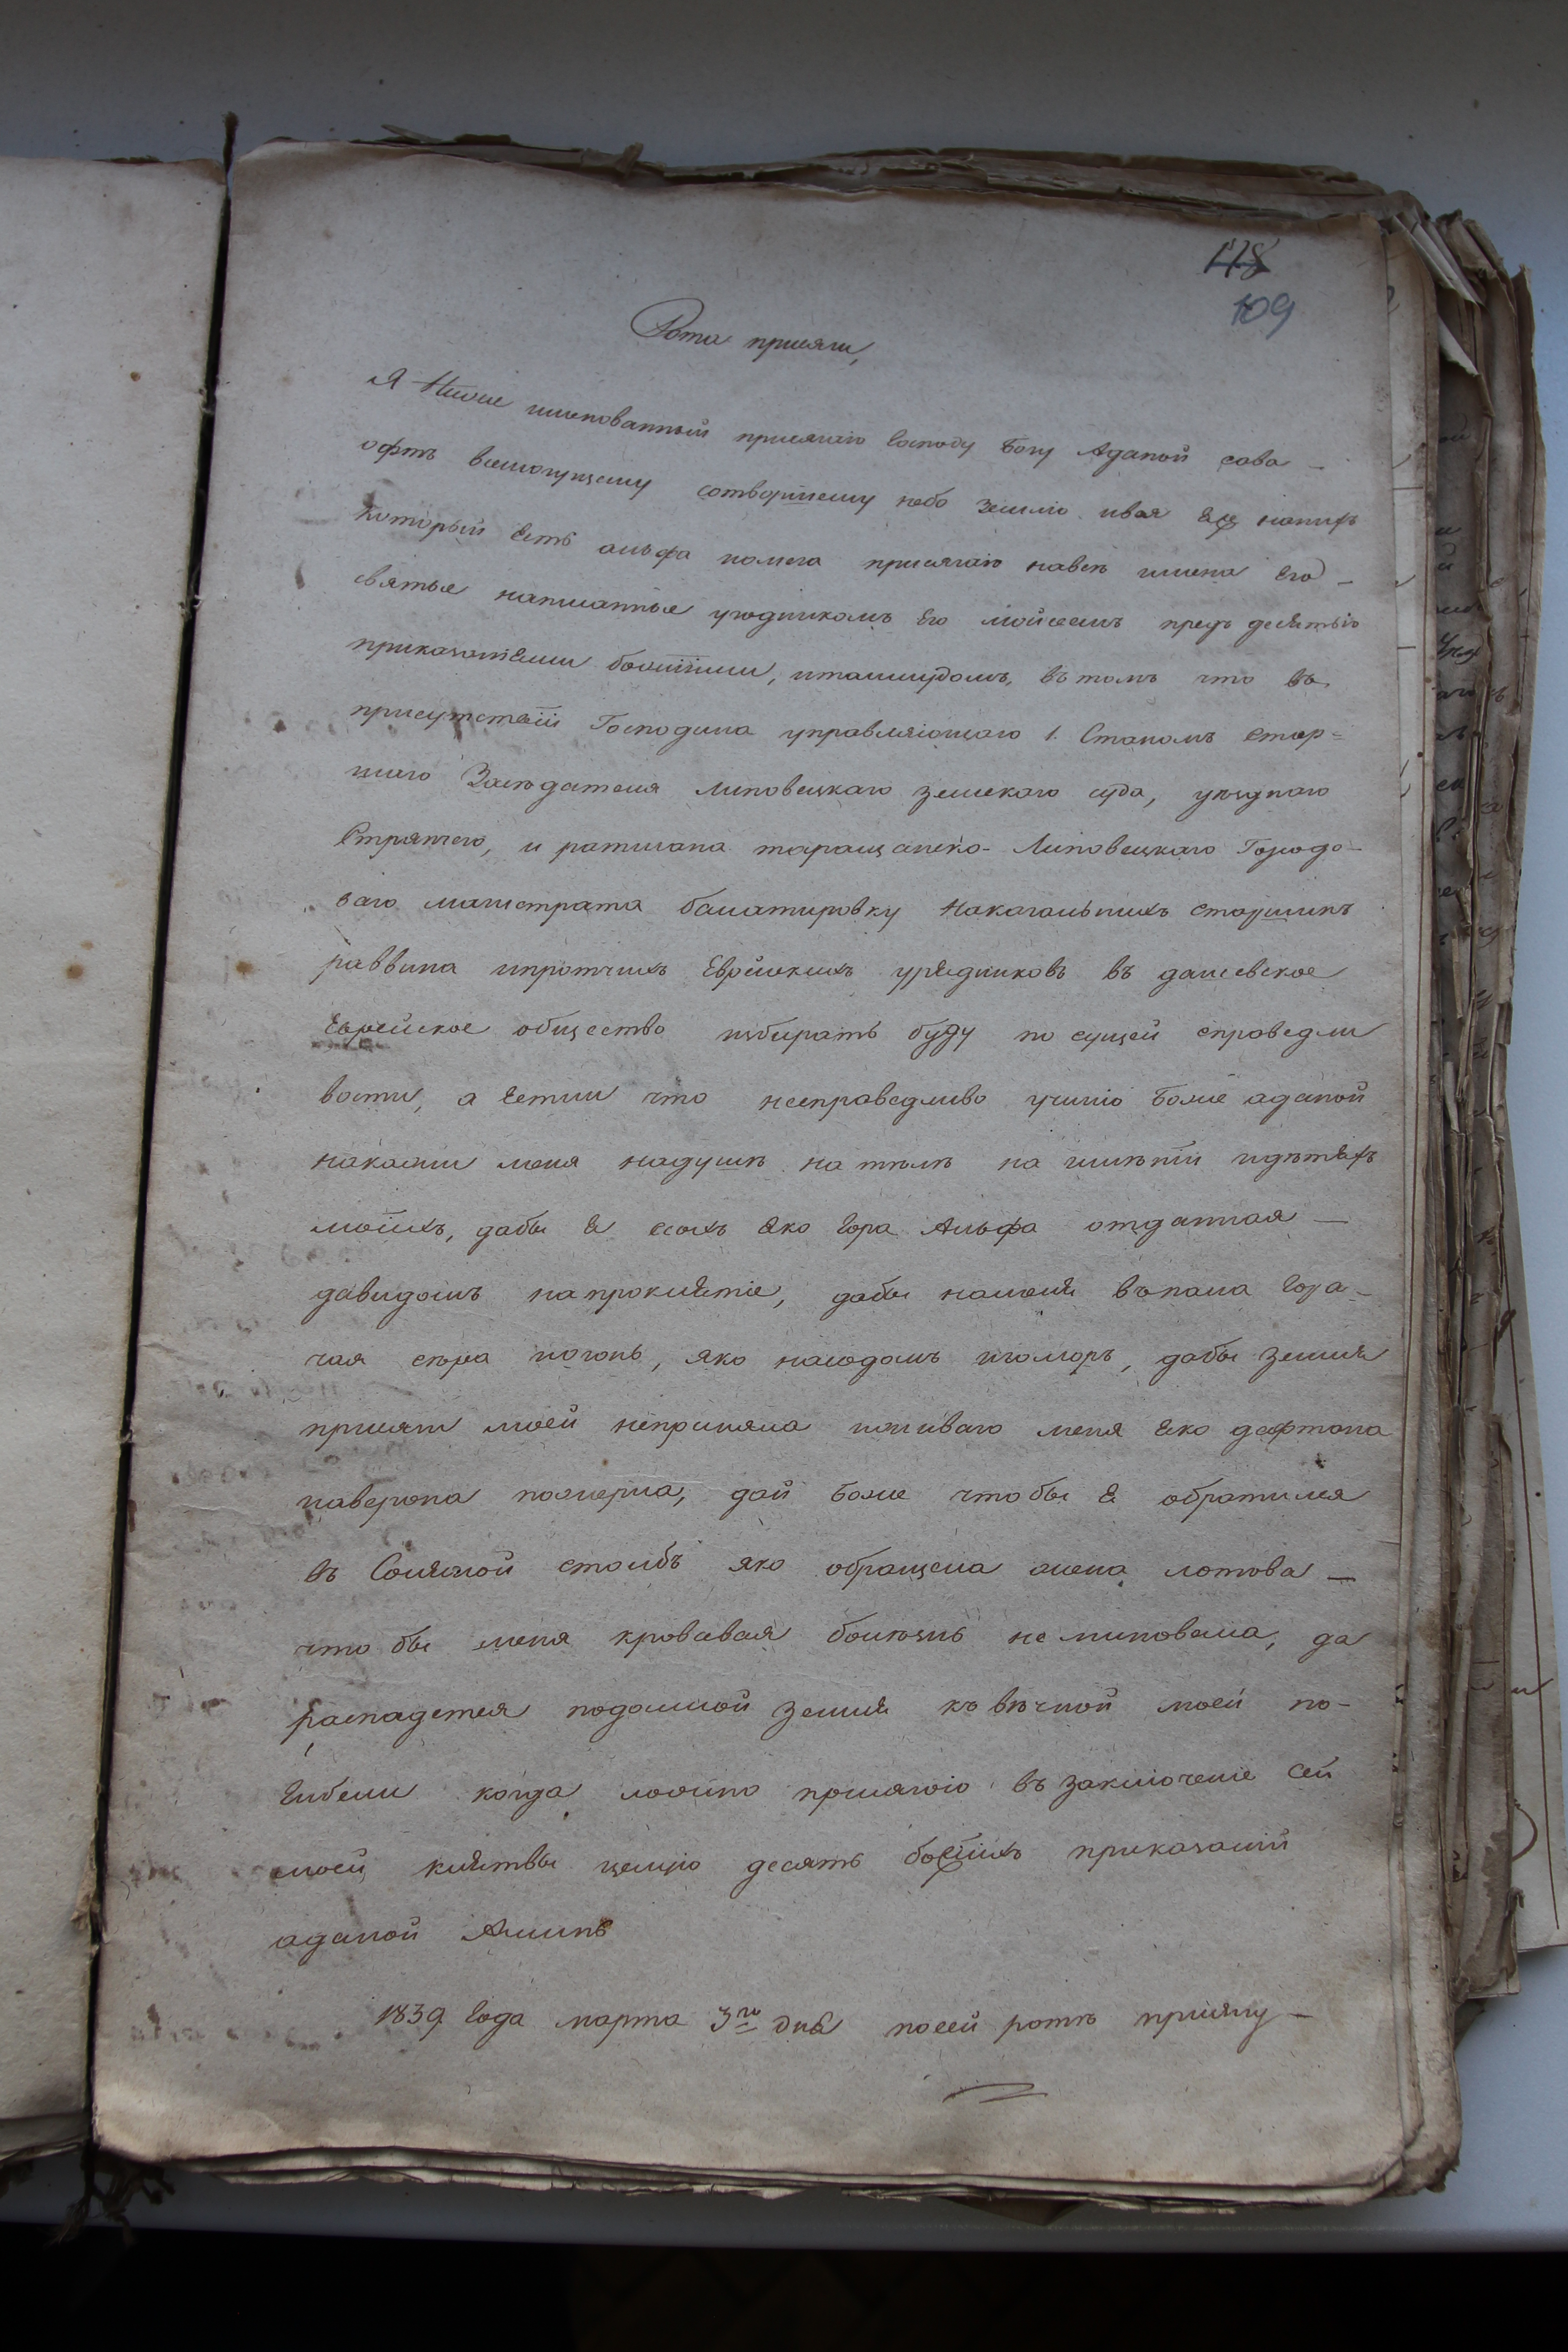 118
109
Рота присяги,
Я Ниже именованный присягаю Господу Богу Аданой сава-
офтъ всемогущему сотворшему небо землю ився на нихъ
который есть альфа иомега присягаю навсѣ имена Его-
святые написанные угодникомъ Его мойсеемъ предъ десятью
приказаніями божіими, италмудомъ, въ томъ что въ
присутствіи Господина управляющаго 1. Станомъ Стар=
шаго Засѣдателя липовецкаго земскаго суда, уѣзднаго
Стряпчего, и ратмана таращанско-Липовецкаго Городо-
ваго магистрата балатировку Накагальныхъ старшинъ
раввина ипротчихъ Еврейскихъ урядниковъ въ дашевское
Еврейское общество избирать буду по сущей справедли
вости, а Естли что несправедливо учиню Боже аданой
накажи меня надушѣ на тѣлѣ на имѣніи идѣтяхъ
моихъ, дабы я изсохъ яко Гора Альфа отданная-
давидомъ напроклятіе, дабы наменя въпала Горя-
чая сѣра иогонь, яко насодомъ игоморъ, дабы земля
присяги моей неприняла иживаго меня яко дафтана
иаверона пожерла, дай Боже что бы я обратился
въ Соляной столбъ яко обращена жена лотова-
что бы меня кровавая болюзнь не миновала, да
распадется подомной земля къ вѣчной моей по-
Гибели когда ложно присягаю въ заключеніе Сей
моей клятвы целую десять божіихъ приказаній
аданой Аминь
1839 Года марта 3го дня посей ротѣ присягу-